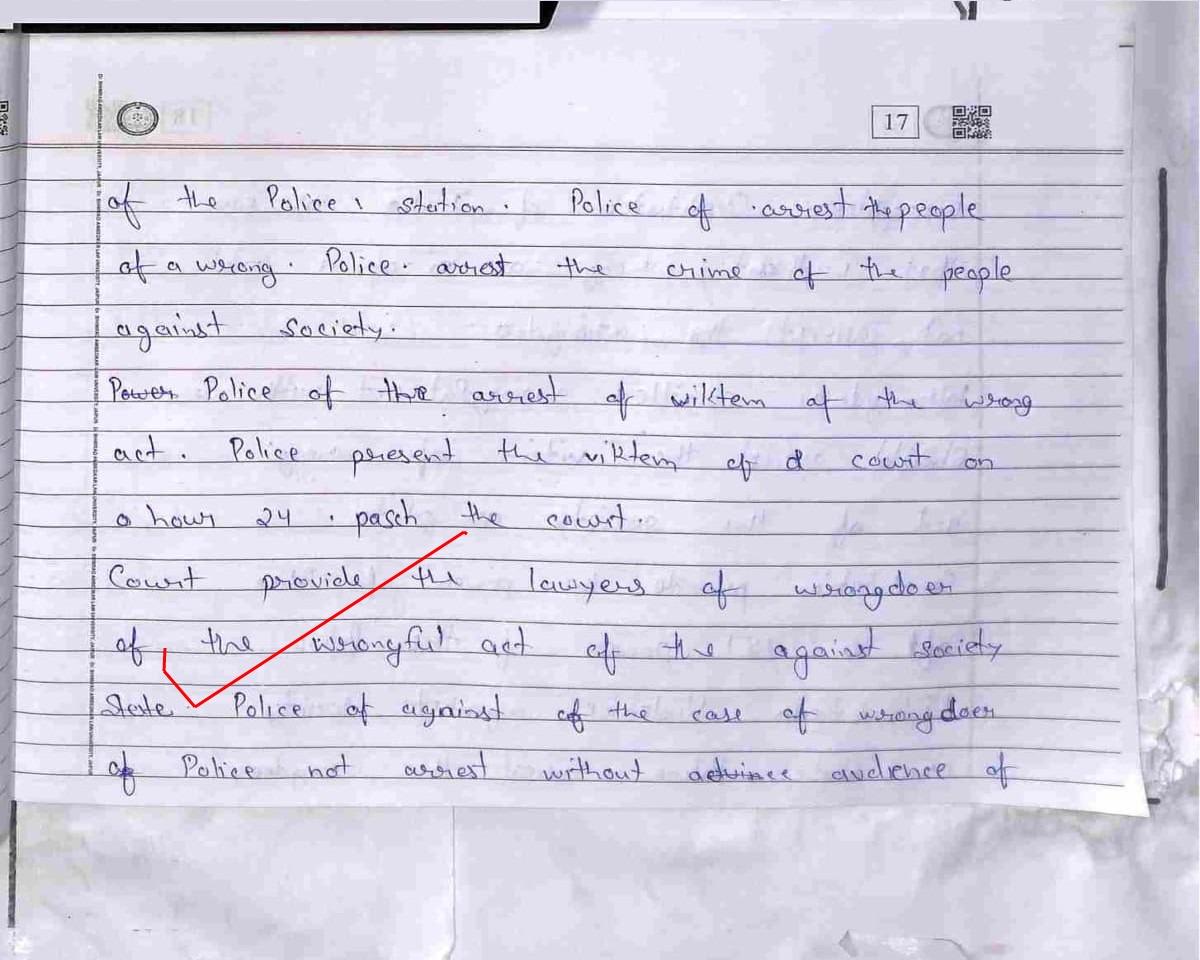 17
of the Police station. Police of arrest the people
of a wrong. Police. arrest the crime of the people
against society.
Power Police of the arrest of wiktem of the wrong
act. Police present the viktem of d court on
a hour 24. pasch the court.
Court provide the lawyers of wrongdoer
of the wrongful act of the against society
State. Police of against of the case of wrongdoer
of Police not arrest without advince audience of